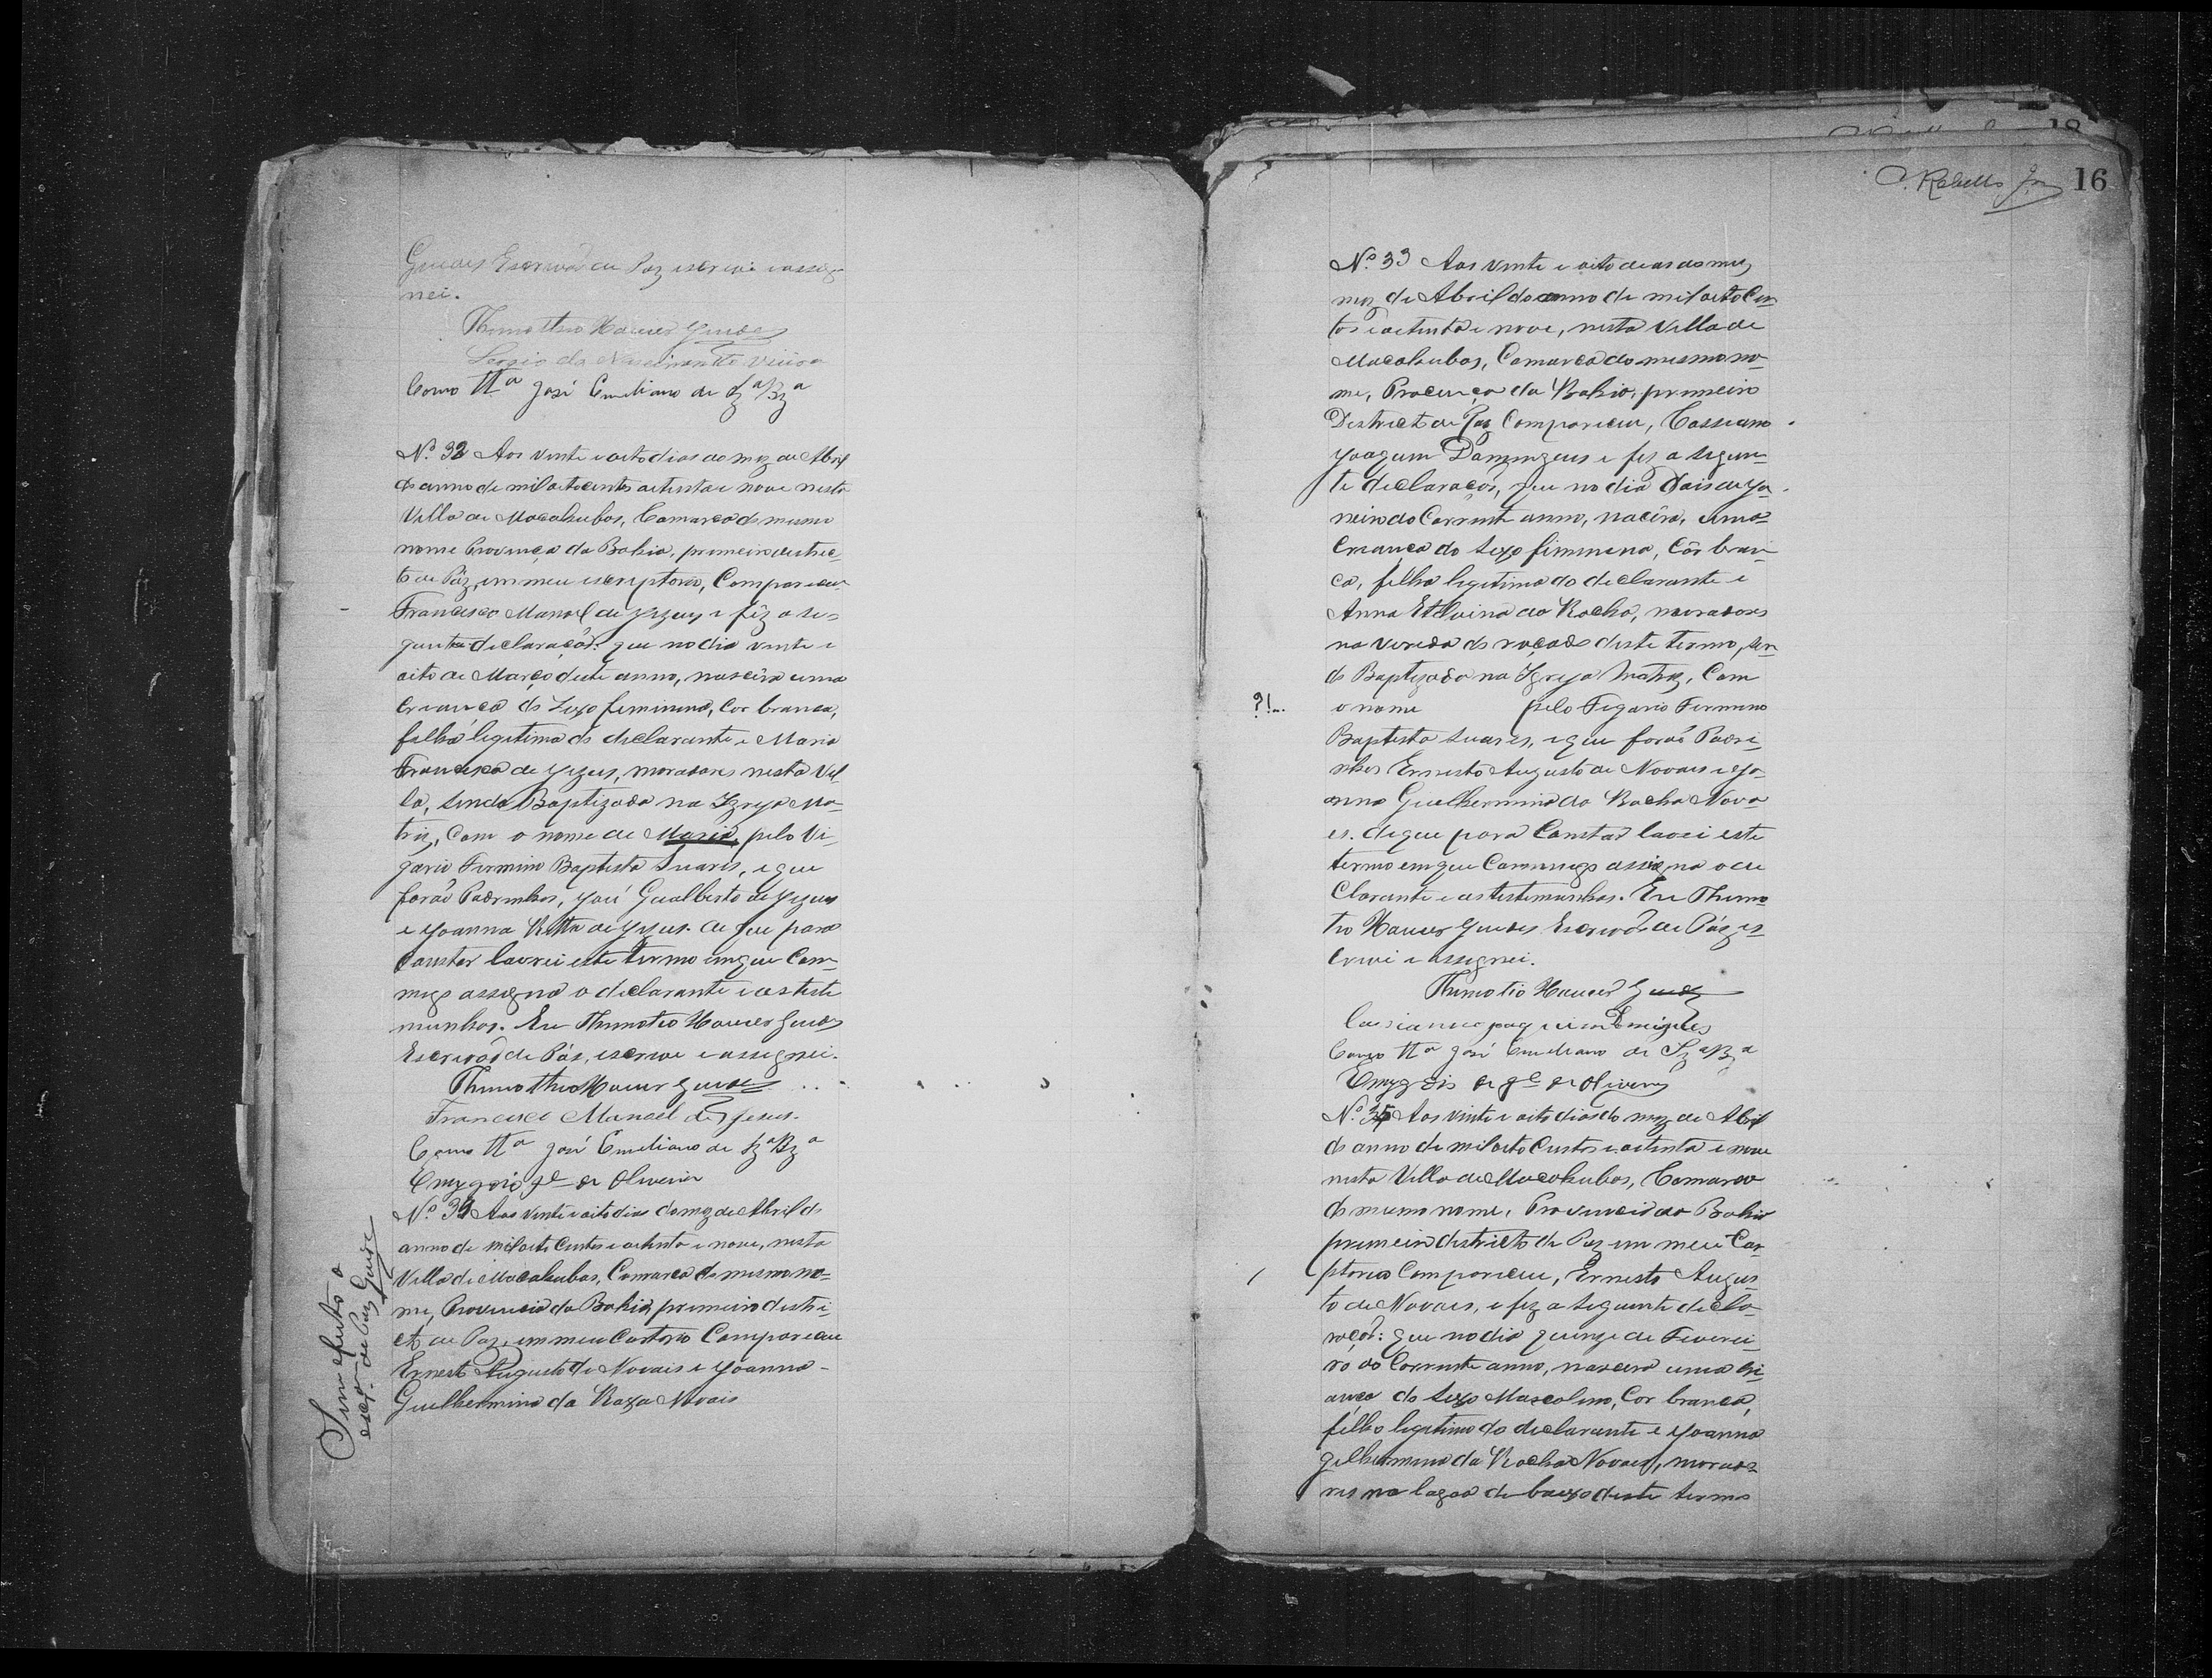 Guedes Escrivão de Paz escrevi e assig-
nei.
Thimotheo Xavier Guedes
Sergio do Nascimento Vieira
Como Tta José Emiliano de Sza Bza
Nº 32 Aos vinte e oito dias do mez de Abril
do anno de mil oitocentos oitenta e nove nesta
Villa de Macahubas, Comarca do mesmo
nome Provinça da Bahia, primeiro destric
to de Páz, em meu escriptorio, Compareceu
Francisco Manoel de Jezus e fêz a se=
guinte declaração: que no dia vinte e
oito de Março deste anno, nascêra uma
Criança do Sexo feminino, Cor branca,
filha legitima do declarante e Maria
Francisca de Jezus, moradores nesta Vil
la, sendo Baptizada na Igreja Ma-
triz, Com o nome de Maria, pelo Vi-
gario Firmino Baptista Suares, e que
forão Padrinhos, José Gualberto de Jezus
e Joanna Ritta de Jezus. de que para
Constar lavrei este termo em que Com-
migo assigna o declarante e as teste
munhas. Eu Thimotio Xavier Guedes
Escrivão de Páz, escrevi e assignei.
Thimotheo Xavier Guedes
Francisco Manoel de Jesus.
Como Tta José Emiliano de Sza Bza
Emygdio Je de Oliveira
Nº 34 Aos vinte e oito dias do mez de Abril do
anno de mil oito Centos e oitenta e nove, nesta
Villa de Macahubas, Comarca do mesmo no=
me, Provincia da Bahia, primeiro destri-
cto de Paz, em meu Cartorio Compareceu
Ernesto Augusto de Novais e Joanna-
Guilhermina da Roxa Novais
Sem efeito o
escr. de Paz Guedes
C. Rabello Jor 16
18
Nº 33 Aos vinte e oito dias do mez
mez de Abril do anno de mil oito Cen
tos e oitenta e nove, nesta Villa de
Macahubas, Comarca do mesmo no-
me, Provença da Bahia, primeiro
Destricto de Paz Compareceu, Cassiano
Joaquim Domingues e fes a seguin-
te declaração, que no dia Dois de Ja-
neiro do Corrente anno, nacêra, uma
Criança do Sexo fimmino, Côr bran-
ca, filha legitima do declarante e
Anna Etelvina da Rocha, moradores
na vereda do roçado deste termo, sen
do Baptizada na Igreja Matriz, Com
?!... o nome pelo Figario Firmino
Baptista Suares, e que forão Padri-
nhos Ernesto Augusto de Novais e Jo-
anna Guilhermina da Rocha Nova
es. de que para Constar lavrei este
termo em que Commigo assigna o de
Clarante e as testemunhas. Eu Thimo
tio Xavier Guedes Escrivão de Páz es
crevi e assignei.
Thimotio Xavier Guedes
Cassianno joaquim Domigues
Como Tta José Emiliano de Sza Bza
Emygdio de Je de Oliveira
Nº 35 Aos vinte e oito dias do mez de Abril
do anno de mil oito Centos e oitenta e nove
nesta Villa de Macahubas, Comarca
do mesmo nome, Provincia da Bahia
primeiro districto de Paz em meu Car
ptorio Compareceu, Ernesto Augus
to de Novais, e fez a seguinte decla-
ração: que no dia quinze de Feverei-
ro do Corrente anno, nascera uma Cri-
ança do Sexo Mascolino, Cor branca,
filho legitimo do declarante e Joanna
gilhermina da Rocha Novais, morado
res na lagoa de baixo deste termo